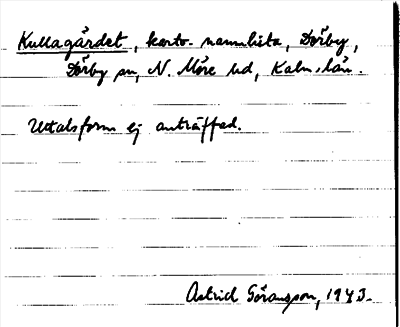 Kullagärdet, karto. namnlista, Dörby,
Dörby sn, N. Möre hd, Kalm. län.
Uttalsform ej anträffad.
Astrid Göransson, 1943.